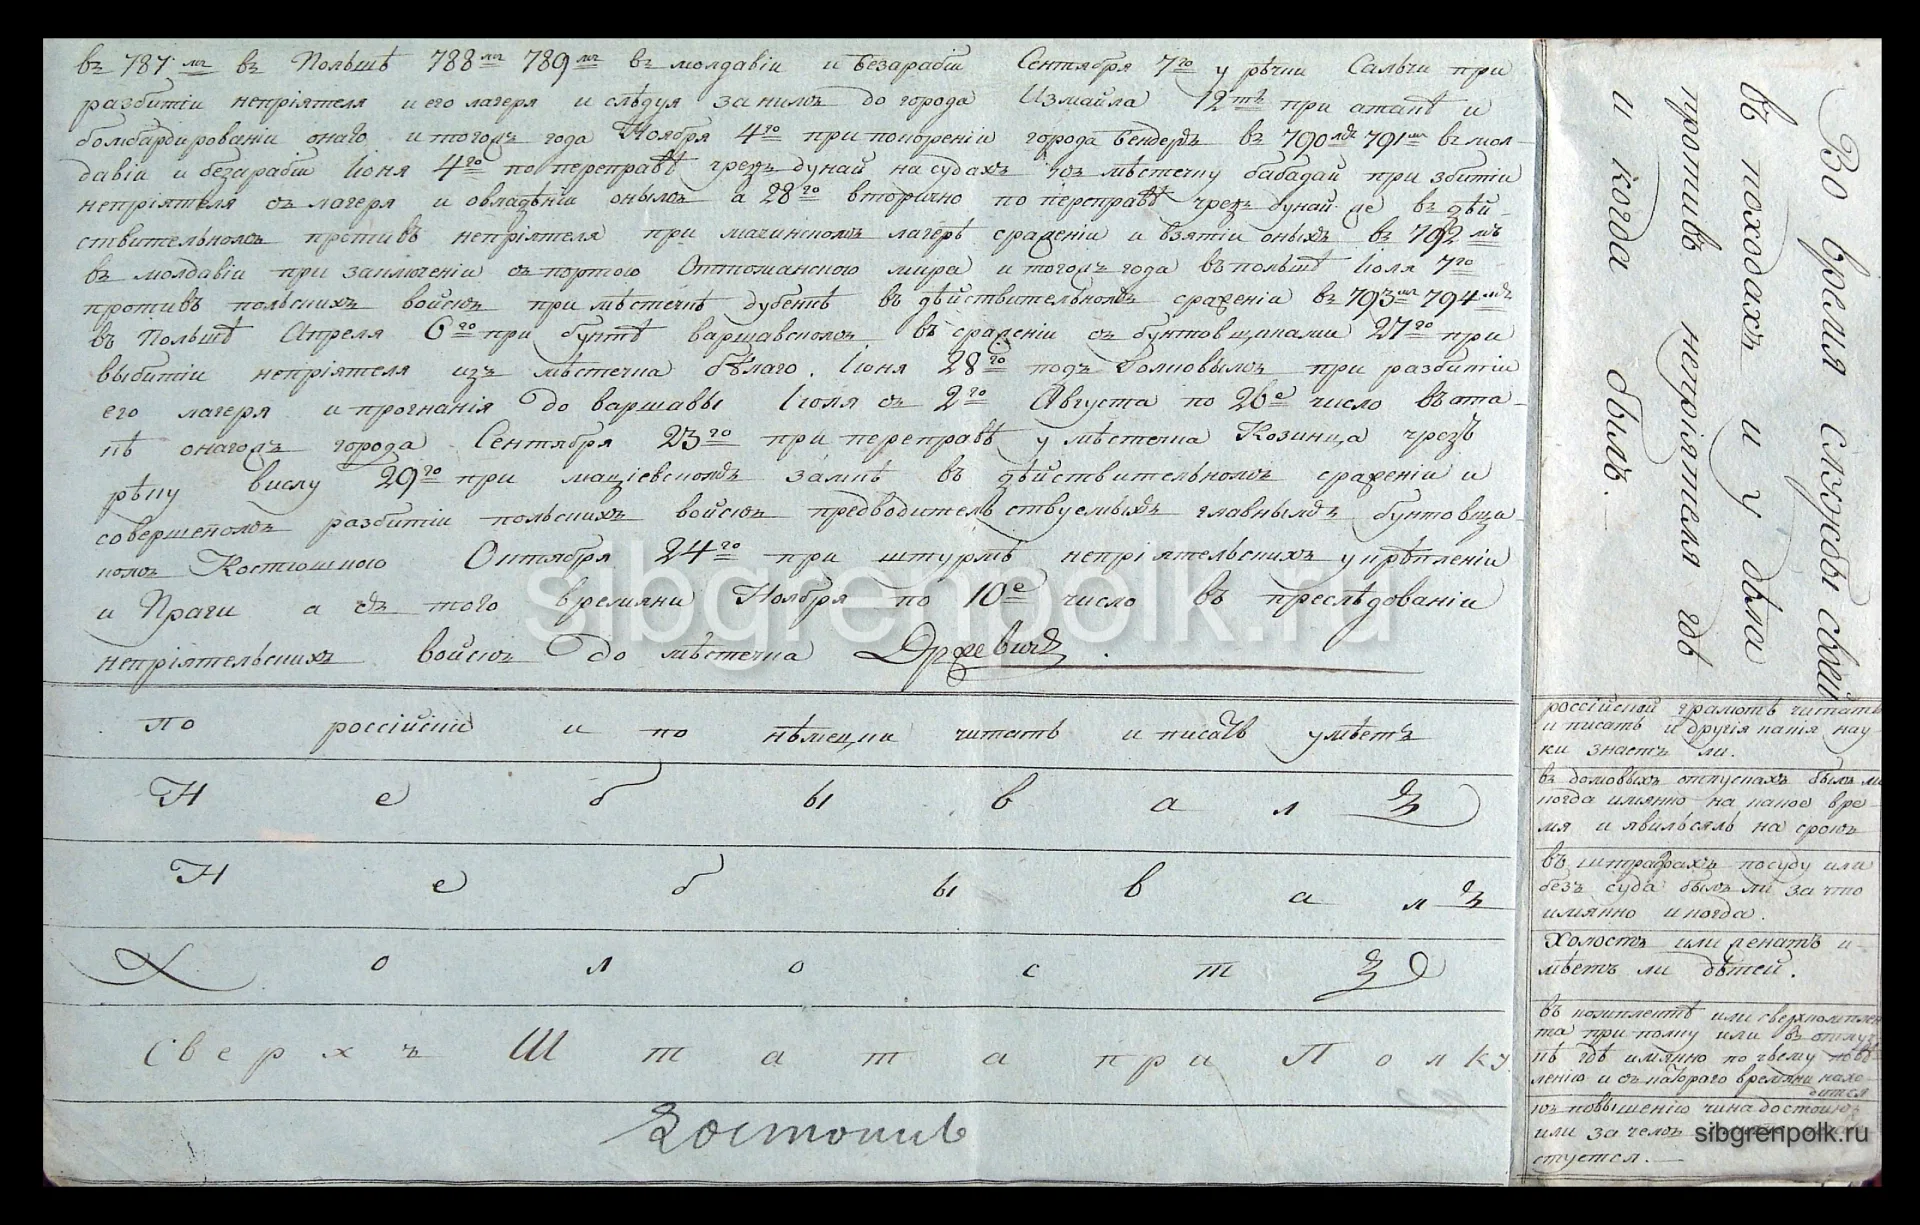 въ 787мъ въ Польшѣ 788мъ 789мъ въ молдавіи и безарабіи Сентября 7го у рѣчки Сальчи при
разбитіи непріятеля и его лагеря и слѣдуя за нимъ до города Измаила 12тъ при атакѣ и
бомбардированіи онаго и тогожъ года Ноября 4го при покореніи города Бендеръ въ 790мъ 791мъ въ мол-
давіи и безарабіи Іюня 4го по переправѣ чрезъ дунай на судахъ къ мѣстечку бабадаи при збитіи
непріятеля съ лагеря и овладѣніи онымъ а 28го вторично по переправѣ чрезъ дунай же въ дѣй-
ствительномъ противъ непріятеля при мачинскомъ лагерѣ сраженіи и взятіи оныхъ въ 792мъ
въ молдавіи при заключеніи съ портою Оттоманскою мира и тогожъ года въ польшѣ Іюля 7го
противъ польскихъ войскъ при мѣстечкѣ дубенкѣ въ дѣйствительномъ сраженіи въ 793мъ 794мъ
въ Польшѣ Апреля 6го при бунтѣ варшавскомъ въ сраженіи съ бунтовщиками 27го при
выбитіи непріятеля изъ мѣстечка бѣлаго. Іюня 28го подъ Голковымъ при разбитіи
его лагеря и прогнанія до варшавы Іюля съ 2го Августа по 26е число въ ата-
кѣ онагожъ города Сентября 23го при переправѣ у мѣстечка Козинца чрезъ
рѣку вислу 29го при маціевскомъ замкѣ въ дѣйствительномъ сраженіи и
совершеномъ разбитіи польскихъ войскъ предводительствуемыхъ главнымъ бунтовщи-
комъ Костюшкою Октября 24го при штурмѣ непріятельскихъ укрѣпленіи
и Праги а съ того времяни Ноября по 10е число въ преслѣдованіи
непріятельскихъ войскъ до мѣстечка Држевичъ.
по россійски и по нѣмецки читать и писать умѣетъ
Не бывалъ
Не бывалъ
Холостъ
Сверхъ Штата при Полку
Достоинъ
Во время службы своей
въ походахъ и у дѣла
противъ непріятеля гдѣ
и когда былъ.
россійской грамотѣ читать
и писать и другія какія нау-
ки знаетъ ли.
въ домовыхъ отпускахъ былъ ли
когда имянно на какое вре-
мя и явилъсяль на срокъ
въ штрафахъ посуду или
безъ суда былъ ли за что
имянно и когда.
Холостъ или женатъ и
мѣетъ ли дѣтей.
въ комплектѣ или сверхкомплек
та при полку или въ отлуч
кѣ гдѣ имянно по чьему повѣ
лению и съ котораго времяни нахо-
дится
къ повышенію чина достоинъ
или за чемъ
стуется.
sibgrenpolk.ru
sibgrenpolk.ru